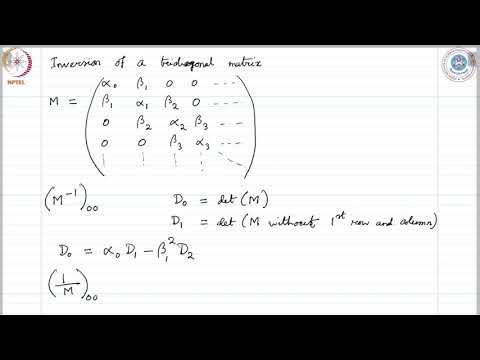 NPTEL
Inversion of a tridiagonal matrix
M = ( α₀ β₁ 0 0 ----
β₁ α₁ β₂ 0 ---
0 β₂ α₂ β₃ ---
0 0 β₃ α₃ ---
¦ ¦ ¦ ¦ )
(M⁻¹)₀₀ D₀ = det (M)
D₁ = det (M without 1ˢᵗ row and column)
D₀ = α₀ D₁ − β₁² D₂
(1/M)₀₀